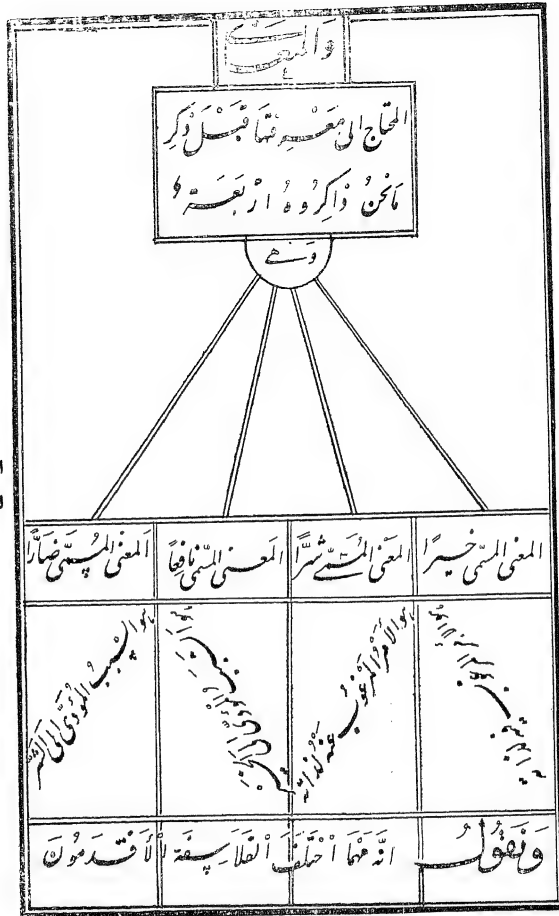 والمعاني
المحتاج الى معرفتها قبل ذكر
ما نحن ذاكروه اربعة
وهي
المعنى المسمى خيرًا
المعنى المسمى شرًّا
المعنى المسمى نافعًا
المعنى المسمى ضارًّا
هو الامر المرغوب عنه لذاته
هو السبب المؤدى الى الشر
ونقول انه مهما اختلف الفلاسفة الأقدمون